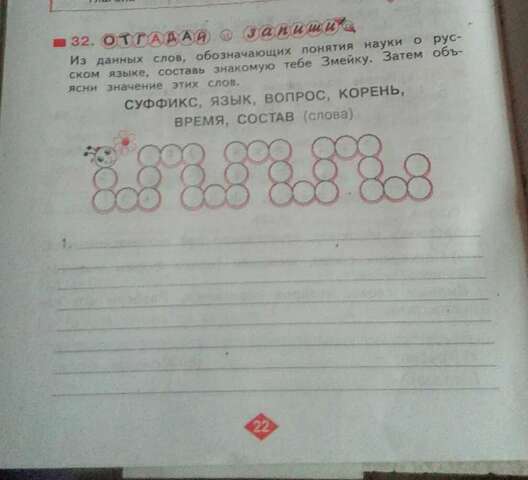 32. ОТГАДАЙ и запиши
Из данных слов, обозначающих понятия науки о рус-
ском языке, составь знакомую тебе Змейку. Затем объ-
ясни значение этих слов.
СУФФИКС, ЯЗЫК, ВОПРОС, КОРЕНЬ,
ВРЕМЯ, СОСТАВ (слова)
1.
22